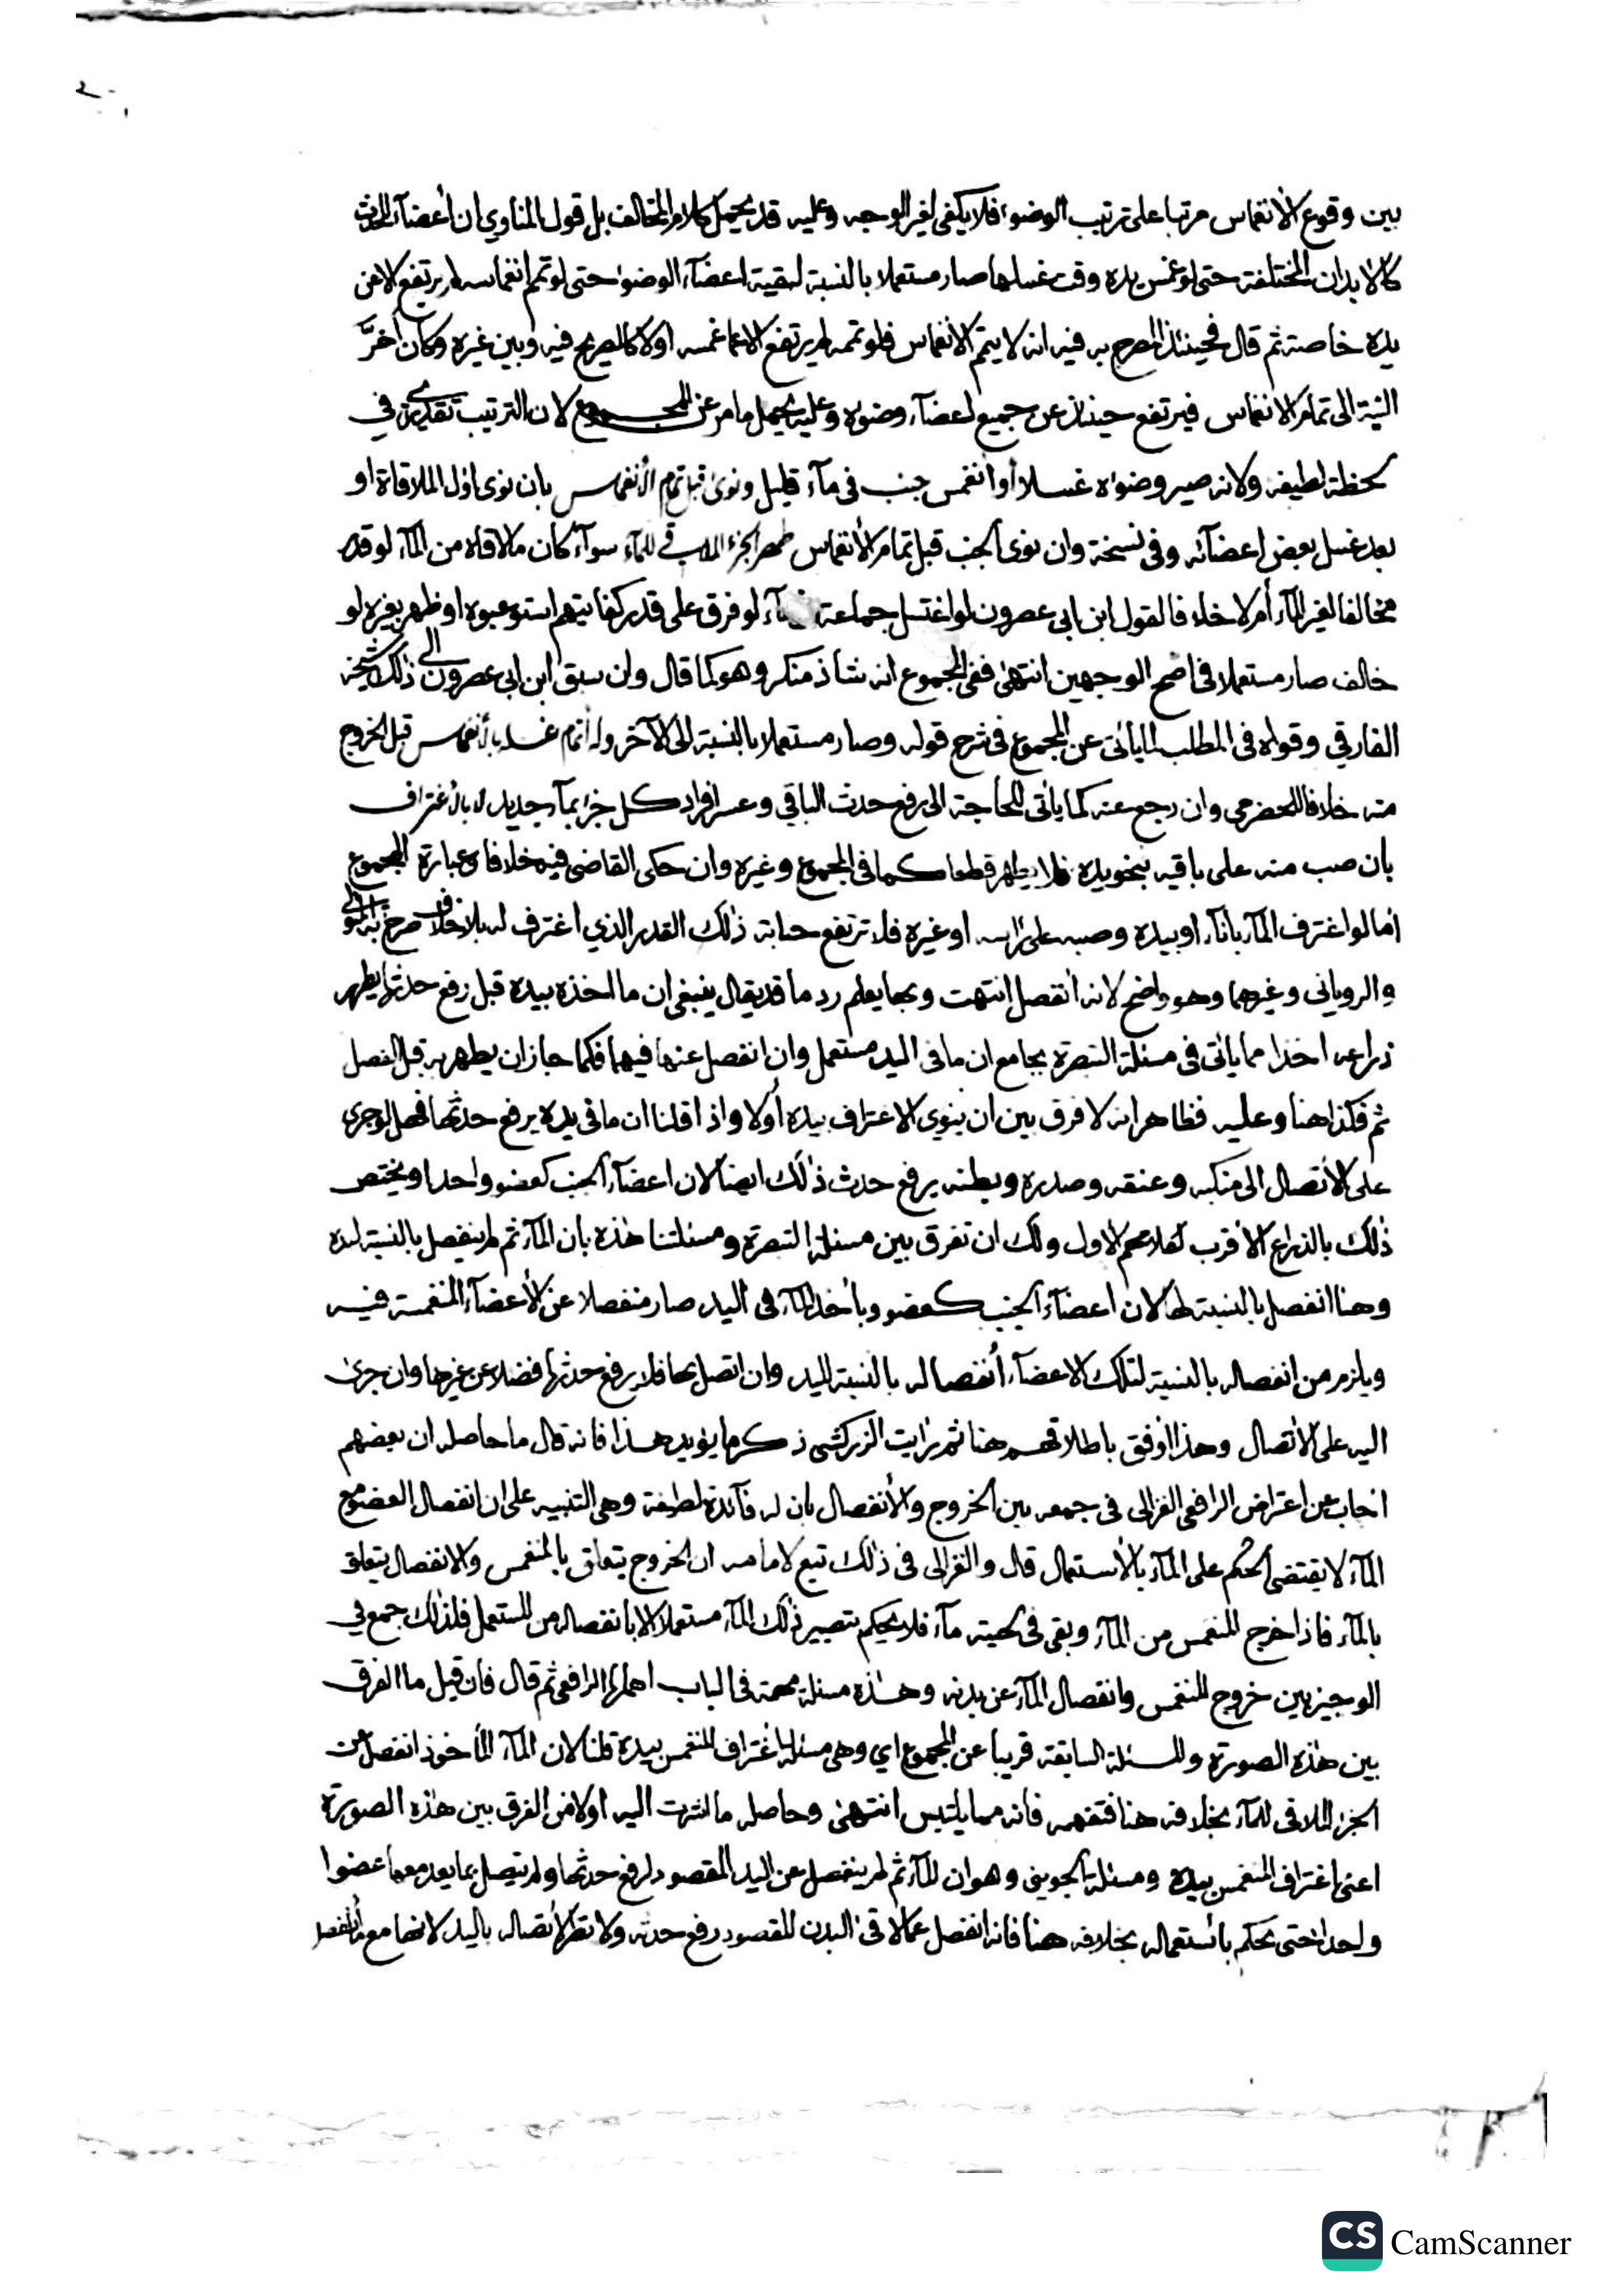 بين وقوع الانغماس مرتبا على ترتيب الوضوء فلا يكفى لغير الوجه وعليه قد يحمل كلام المخالف بل قول المناوي ان أعضآء المحدث
كالابدان المختلفة حتى لو غمس يده وقت غسلها صار مستعملا بالنسبة لبقية اعضآء الوضوء حتى لو تم انغماسه لم يرتفع الا عن
يده خاصة ثم قال فحينئذ المصرح به فيه انه لا يتم الانغماس فلو تممه لم يرتفع الا عما غمسه اولا كالصريح فيه وبين غيره وكأن أخّر
النية الى تمام الانغماس فيرتفع حينئذ عن جميع اعضآء وضوئه وعليه يحمل ما مر عن المجموع لان الترتيب تقديري في
لحظة لطيفة ولانه صير وضوءه غسلا أو انغمس جنب فى مآء قليل ونوى قبل تمام الانغماس بان نوى اول الملاقاة او
بعد غسل بعض اعضآئه وفى نسخة وان نوى الجنب قبل تمام الانغماس طهر الجزء الملاقي للمآء سوآء كان ما لاقاه من المآء لو قدر
مخالفا لغير المآء أم لا خلافا لقول ابن ابى عصرون لو اغتسل جماعة لو فرق على قدر كفايتهم استوعبوه او ظهر بغيره لو
خالف صار مستعملا فى اصح الوجهين انتهى ففى المجموع انه شاذ منكر وهو كما قال وان سبق ابن ابى عصرون الى ذلك شيخه
الفارقي وقوله فى المطلب لما يأتى عن المجموع فى شرح قوله وصار مستعملا بالنسبة الى الآخر وله أتمام غسله بانغماس قبل الخروج
منه خلافا للحضرمى وان رجع عنه كما ياتى للحاجة الى رفع حدث الباقي وعسر افراد كل جزء بمآء جديد لا باغتراف
بان صب منه على باقيه بنحو يده فلا يطهر قطعا كما فى المجموع وغيره وان حكى القاضى فيه خلافا وعبارة المجموع
أما لو اغترف المآء بانآء او بيده وصبه على رأسه او غيره فلا ترتفع جنابة ذلك القدر الذي اغترف له بلا خلاف صرح به
والرويانى وغيرهما وهو واضح لانه انفصل انتهت وبها يعلم رد ما قد يقال ينبغى ان ما اخذه بيده قبل رفع حدثها يطهر
ذراعه اخذا مما ياتى فى مسئلة التبصرة بجامع ان ما فى اليد مستعمل وان انفصل عنها فيهما فكما جاز ان يطهر به قبل الفصل
ثم فكذا هنا وعليه فظاهر انه لا فرق بين ان ينوي الاغتراف بيده أولا واذا قلنا ان ما فى يده يرفع حدثها فهل لو جرى
على الاتصال الى منكبه وعنقه وصدره وبطنه يرفع حدث ذلك ايضا لان اعضآء الجنب كعضو واحد او يختص
ذلك بالذراع الاقرب لكلامهم الاول ولك ان تفرق بين مسئلة التبصرة ومسئلتنا هذه بان المآء ثم لم ينفصل بالنسبة ليده
وهنا انفصل بالنسبة لها لان اعضآء الجنب كعضو وبأخذ المآء فى اليد صار منفصلا عن الاعضآء المنغمسة فيه
ويلزم من انفصاله بالنسبة لتلك الاعضآء أنفصاله بالنسبة لليد وان اتصل بها فلا يرفع حدثها فضلا عن غيرها وان جرى
اليه على الاتصال وهذا اوفق باطلاقهم هنا ثم رايت الزركشى ذكر ما يؤيد هذا فانه قال ما حاصله ان بعضهم
اجاب عن اعتراض الرافعى الغزالى فى جمعه بين الخروج والانفصال بان له فآئدة لطيفة وهى التنبيه على ان انفصال العضو مع
المآء لا يقتضى الحكم على المآء بالاستعمال قال والغزالى فى ذلك تبع لامامه ان الخروج يتعلق بالمنغمس والانفصال يتعلق
بالمآء فاذا خرج المنغمس من المآء وبقى فى لحيته مآء فلا يحكم بتصيير ذلك المآء مستعملا الا بانفصاله من المستعمل فلذلك جمع فى
الوجيز بين خروج المنغمس وانفصال المآء عن بدنه وهذه مسئلة مهمة فى الباب اهملها الرافعى ثم قال فان قيل ما الفرق
بين هذه الصورة والمسئلة السابقة قريبا عن المجموع اي وهى مسئلة اغتراف المنغمس بيده قلنا لان المآء المأخوذ انفصل عن
الجزء الملاقى للمآء بخلافه هنا فتفهمه فانه مما يلتبس انتهى وحاصله ما اشرت اليه اولا من الفرق بين هذه الصورة
اعنى اغتراف المنغمس بيده ومسئلة الجوينى وهو ان المآء ثم لم ينفصل عن اليد المقصود لرفع حدثها ولم يتصل بما يعد معها عضوا
واحدا حتى يحكم بأستعماله بخلافه هنا فانه انفصل عما لاقى البدن المقصود رفع حدثه ولا نظر لاتصاله باليد لانها مع ما أنفصل
CS CamScanner